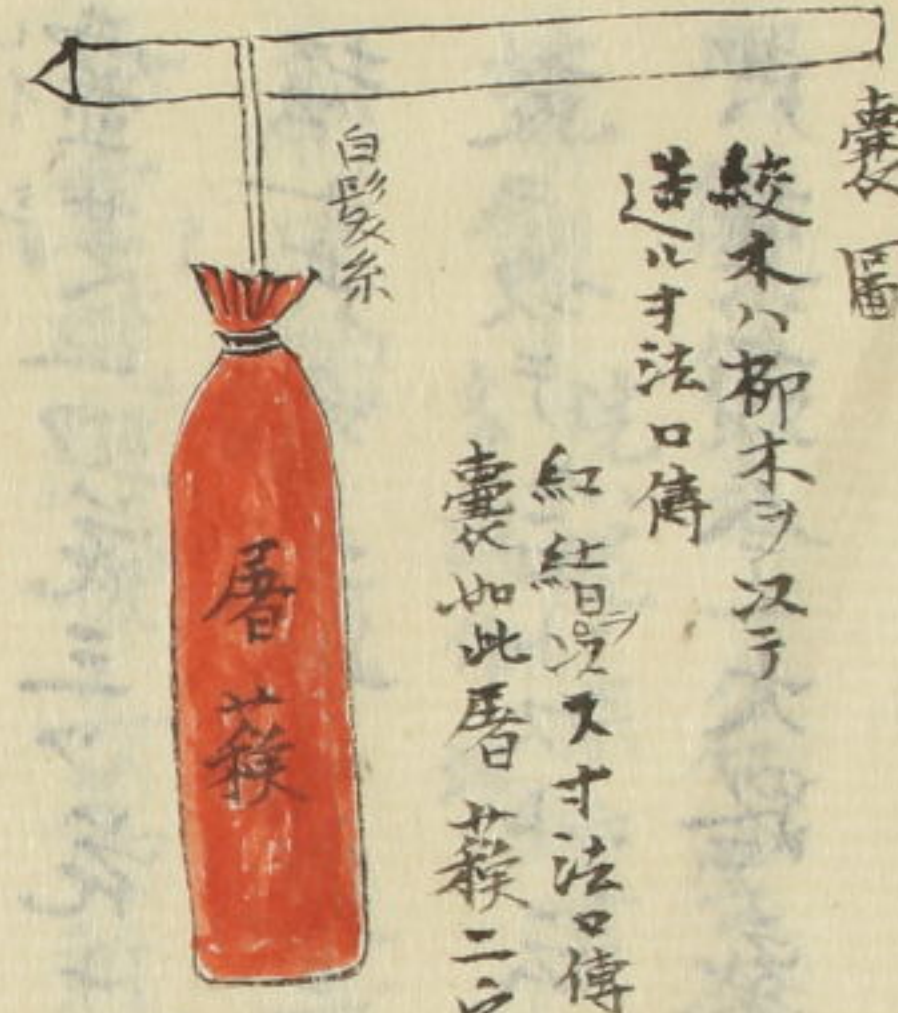 嚢圖
絞木ハ柳木ヲ以テ
造ル寸法口傳
紅絹ヲ以ス寸法口傳
嚢如此屠蘓二
白髪糸
屠蘓